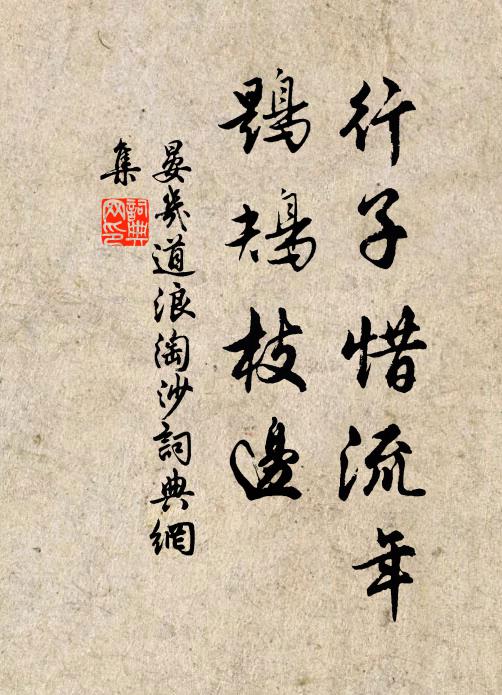 行子惜流年
鶗鴂枝邊
晏幾道浪淘沙詞典網
集
詞典
网印